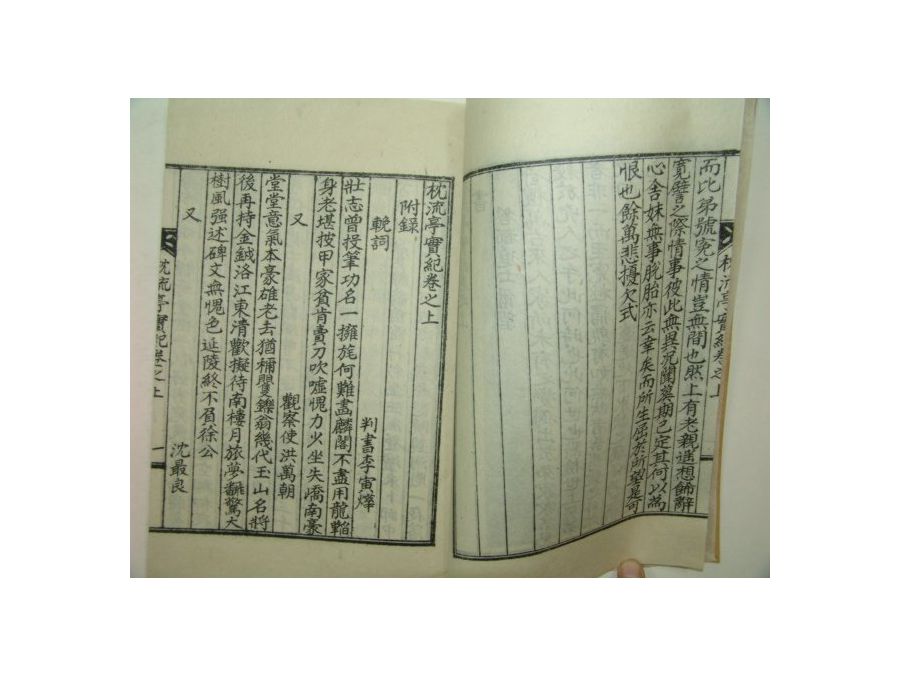 而比弟號寃之情豈無間也然上有老親遙想歸辭
寬譬之際情事彼此無異况闕葬期已定其何以爲
心舍妹無事脫胎亦云幸矣而所生屈於所望是可
恨也餘萬悲擾欠式
枕流亭實紀卷之上
枕流亭實紀卷之上
附錄
輓詞
判書李寅燁
壯志曾投筆功名一擁旄何難畵麟閣不盡用龍韜
身老堪按甲家貧肯賣刀吹噓愧力火坐失嶠南豪
又
觀察使洪萬朝
堂堂意氣本豪雄老去猶稱矍鑠翁幾代玉山名將
後再持金鉞洛江東清歡擬待南樓月旅夢飜驚大
樹風强述碑文無愧色延陵終不負徐公
又
沈最良
枕流亭實紀卷之上
一